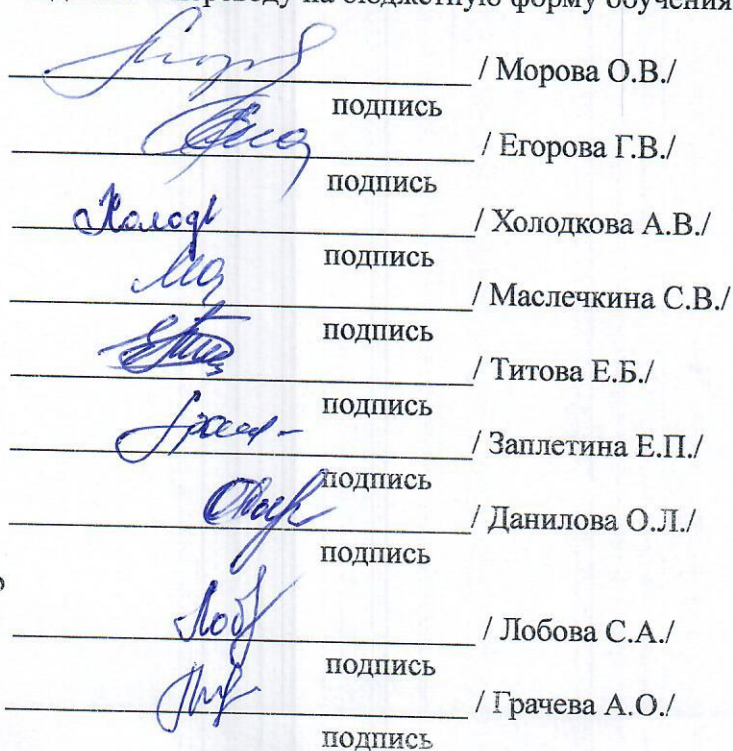 переводу на бюджетную форму обучения
/ Морова О.В./
подпись
/ Егорова Г.В./
подпись
Холодк / Холодкова А.В./
подпись
/ Маслечкина С.В./
подпись
/ Титова Е.Б./
подпись
/ Заплетина Е.П./
подпись
/ Данилова О.Л./
подпись
Лоб / Лобова С.А./
подпись
/ Грачева А.О./
подпись